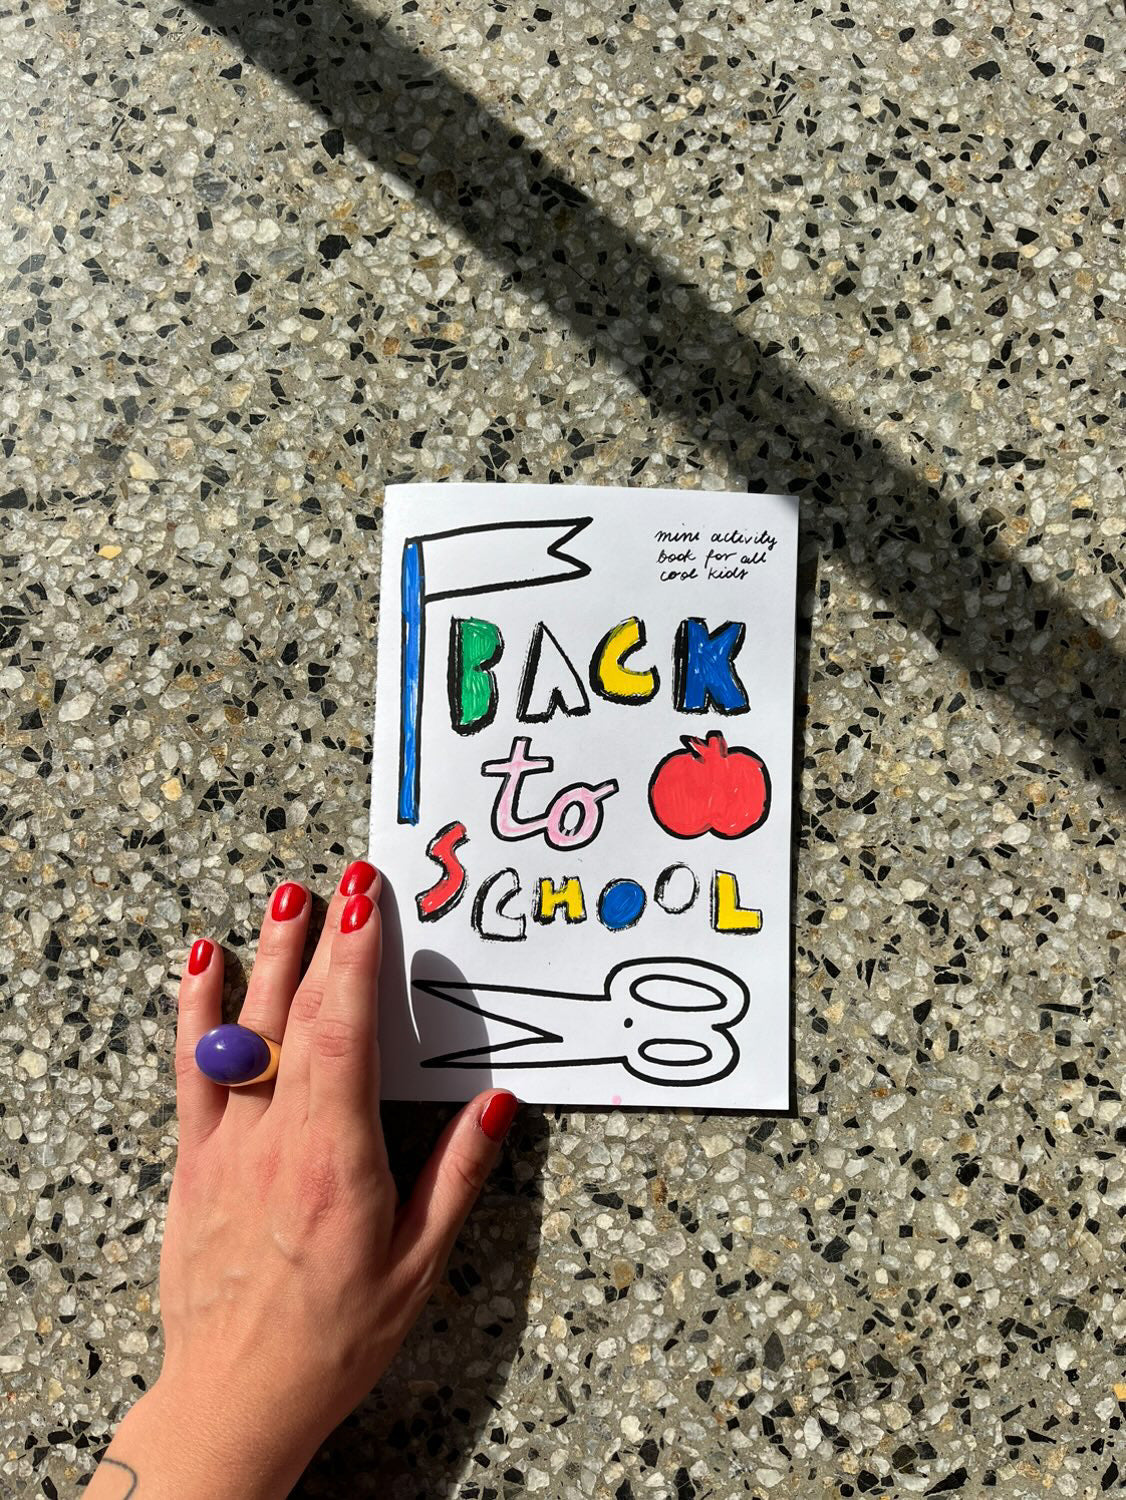 mini activity
book for all
cool kids
BACK
to
SCHOOL